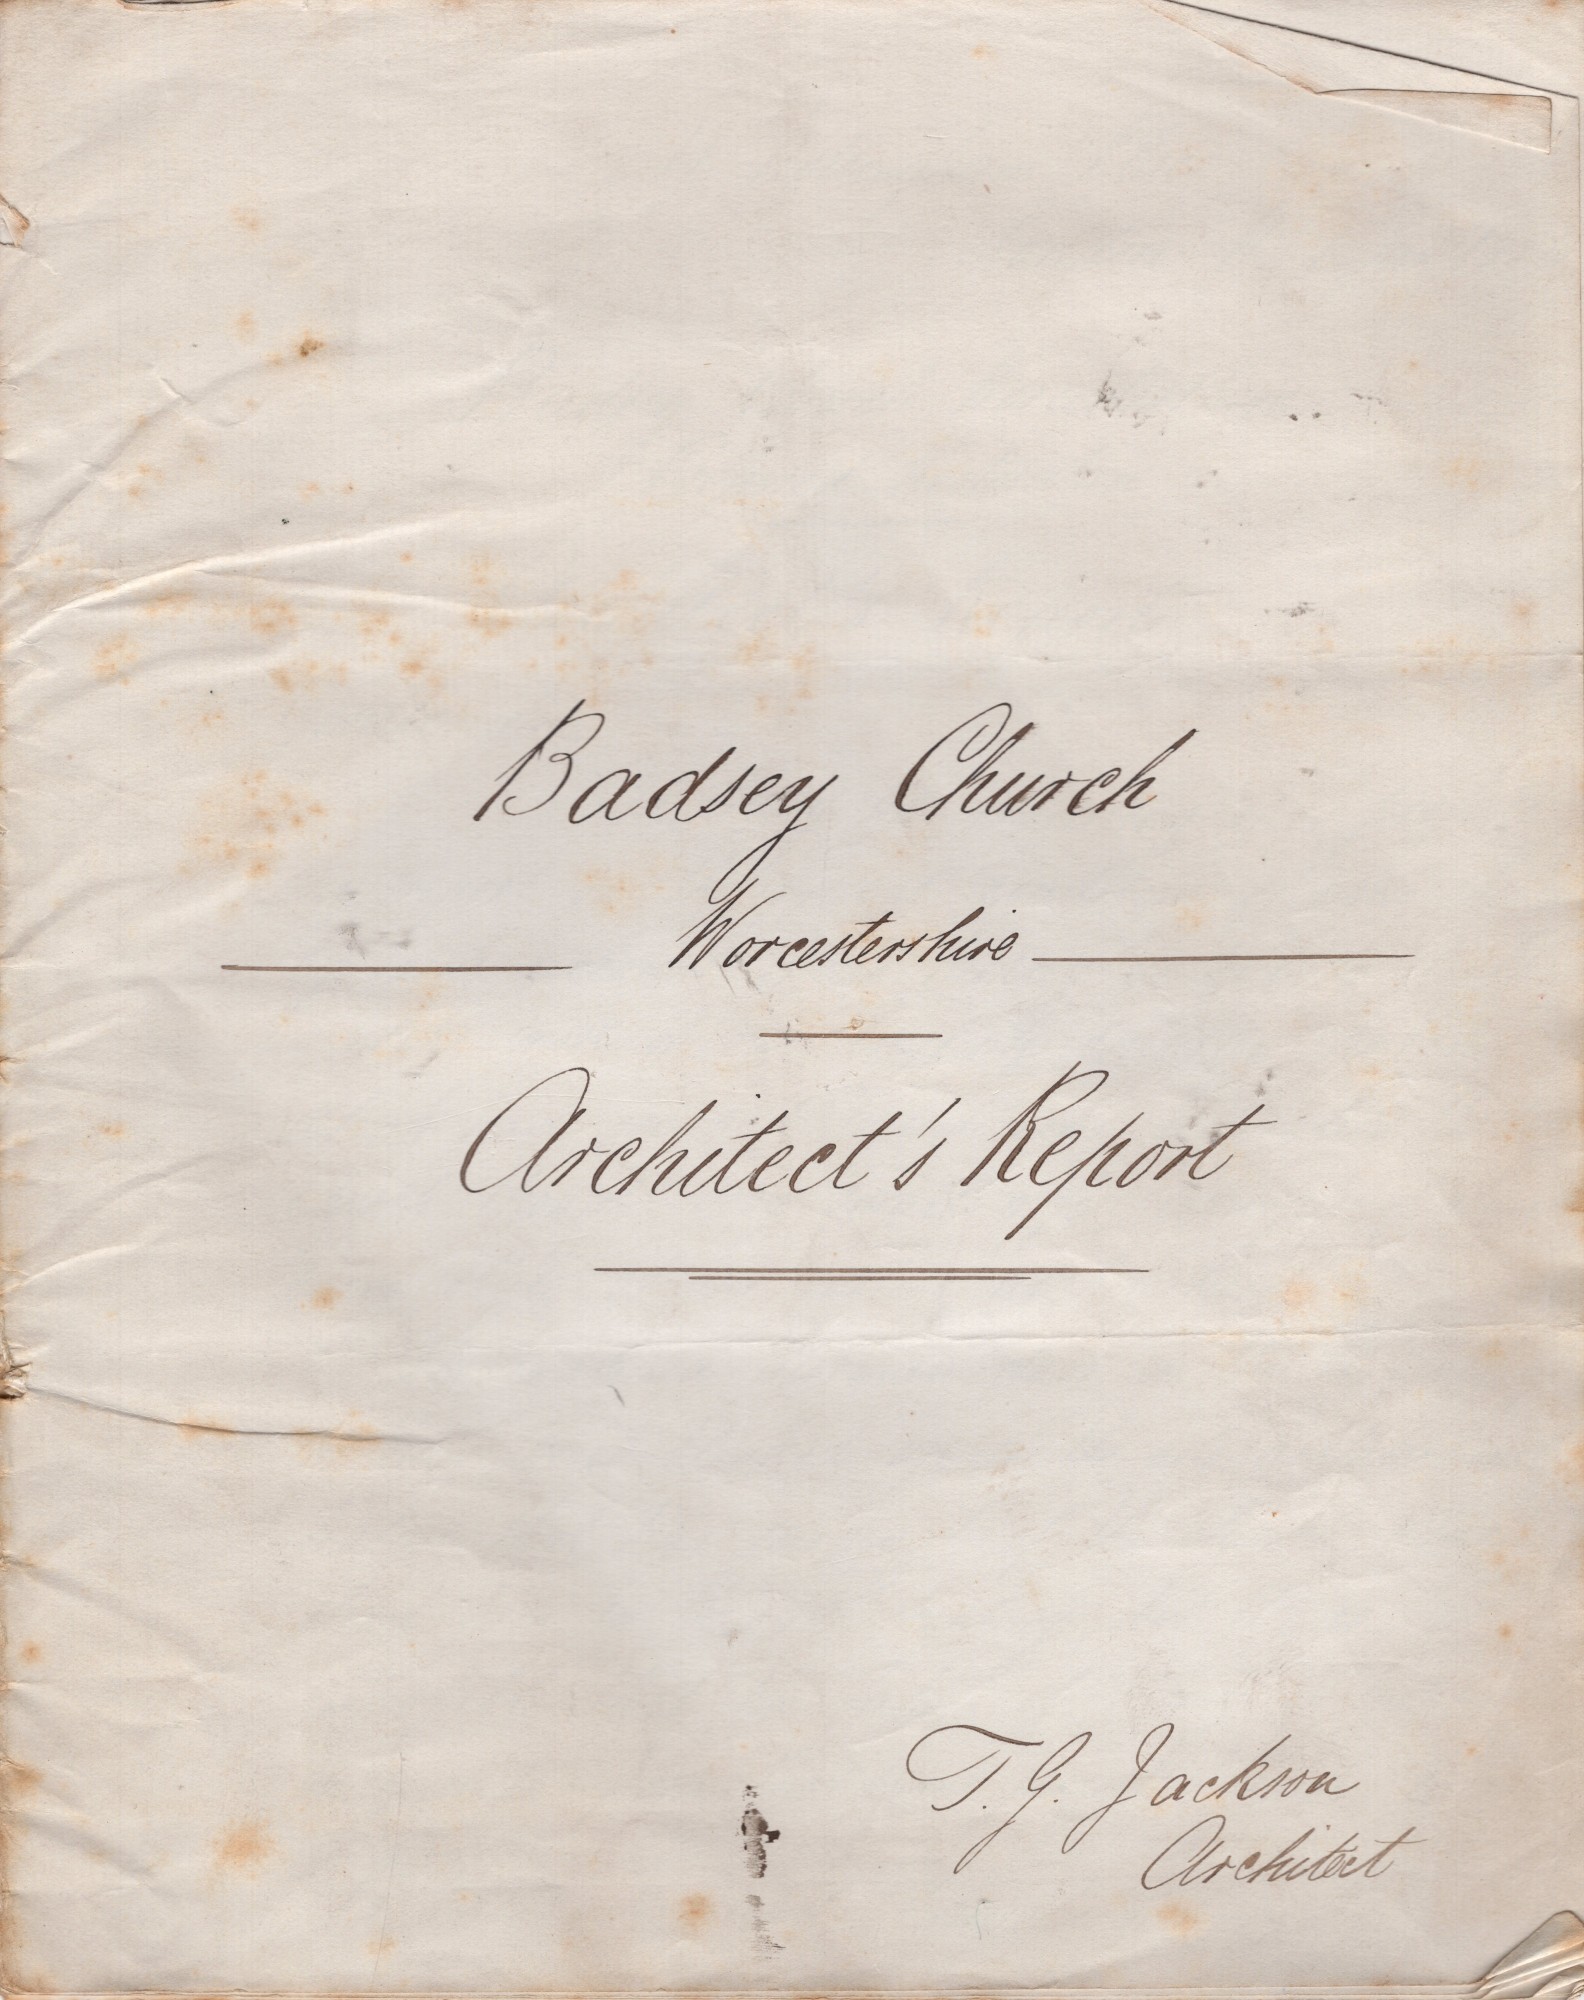 Badsey Church
Worcestershire
Architect's Report
T. G. Jackson
Architect